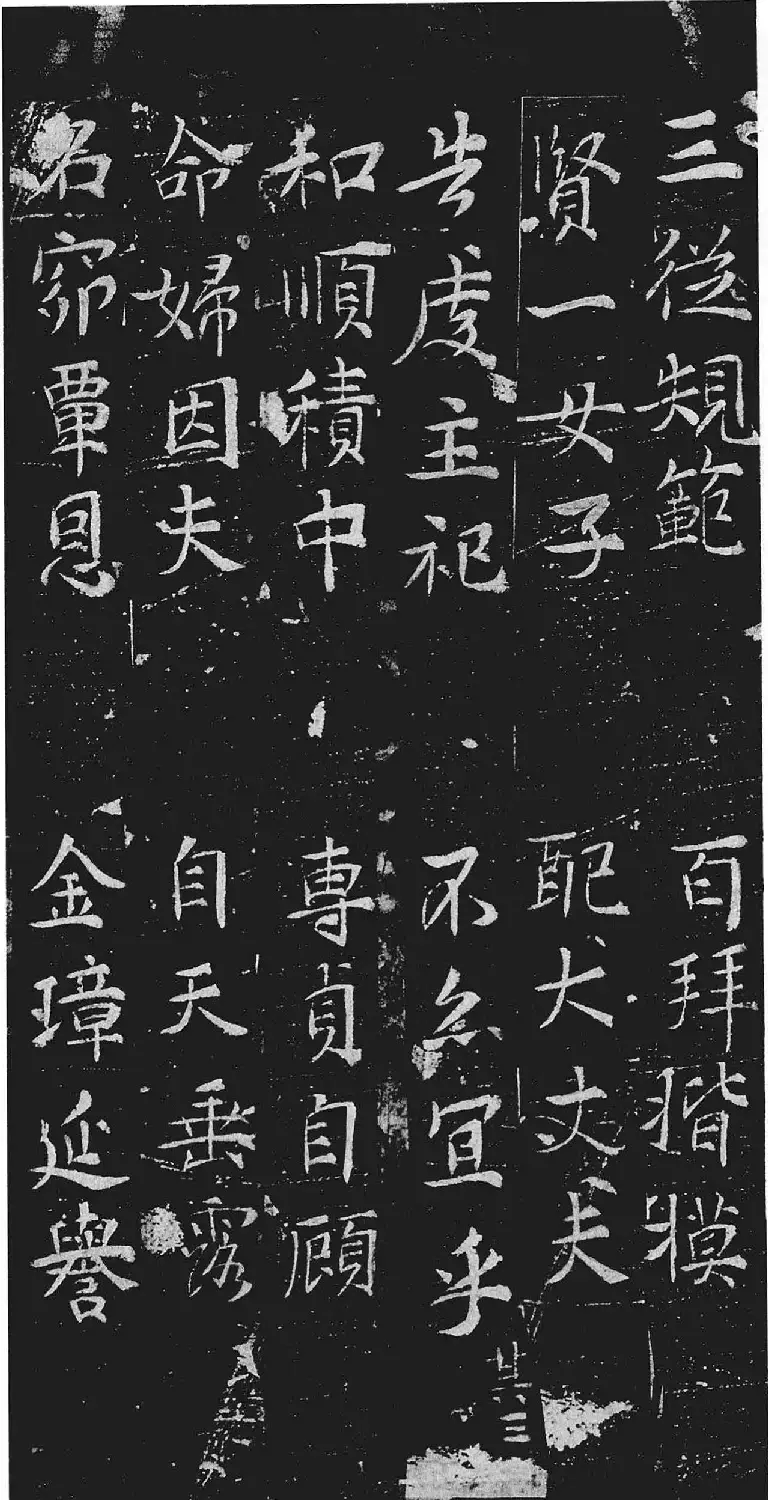 三從䂓範　百拜揩摸
賢一女子　配大丈夫
告虔主祀　不亦宜乎
其三
和順積中　專貞自顧
命婦因夫　自天垂露
石窌覃恩　金璋延譽